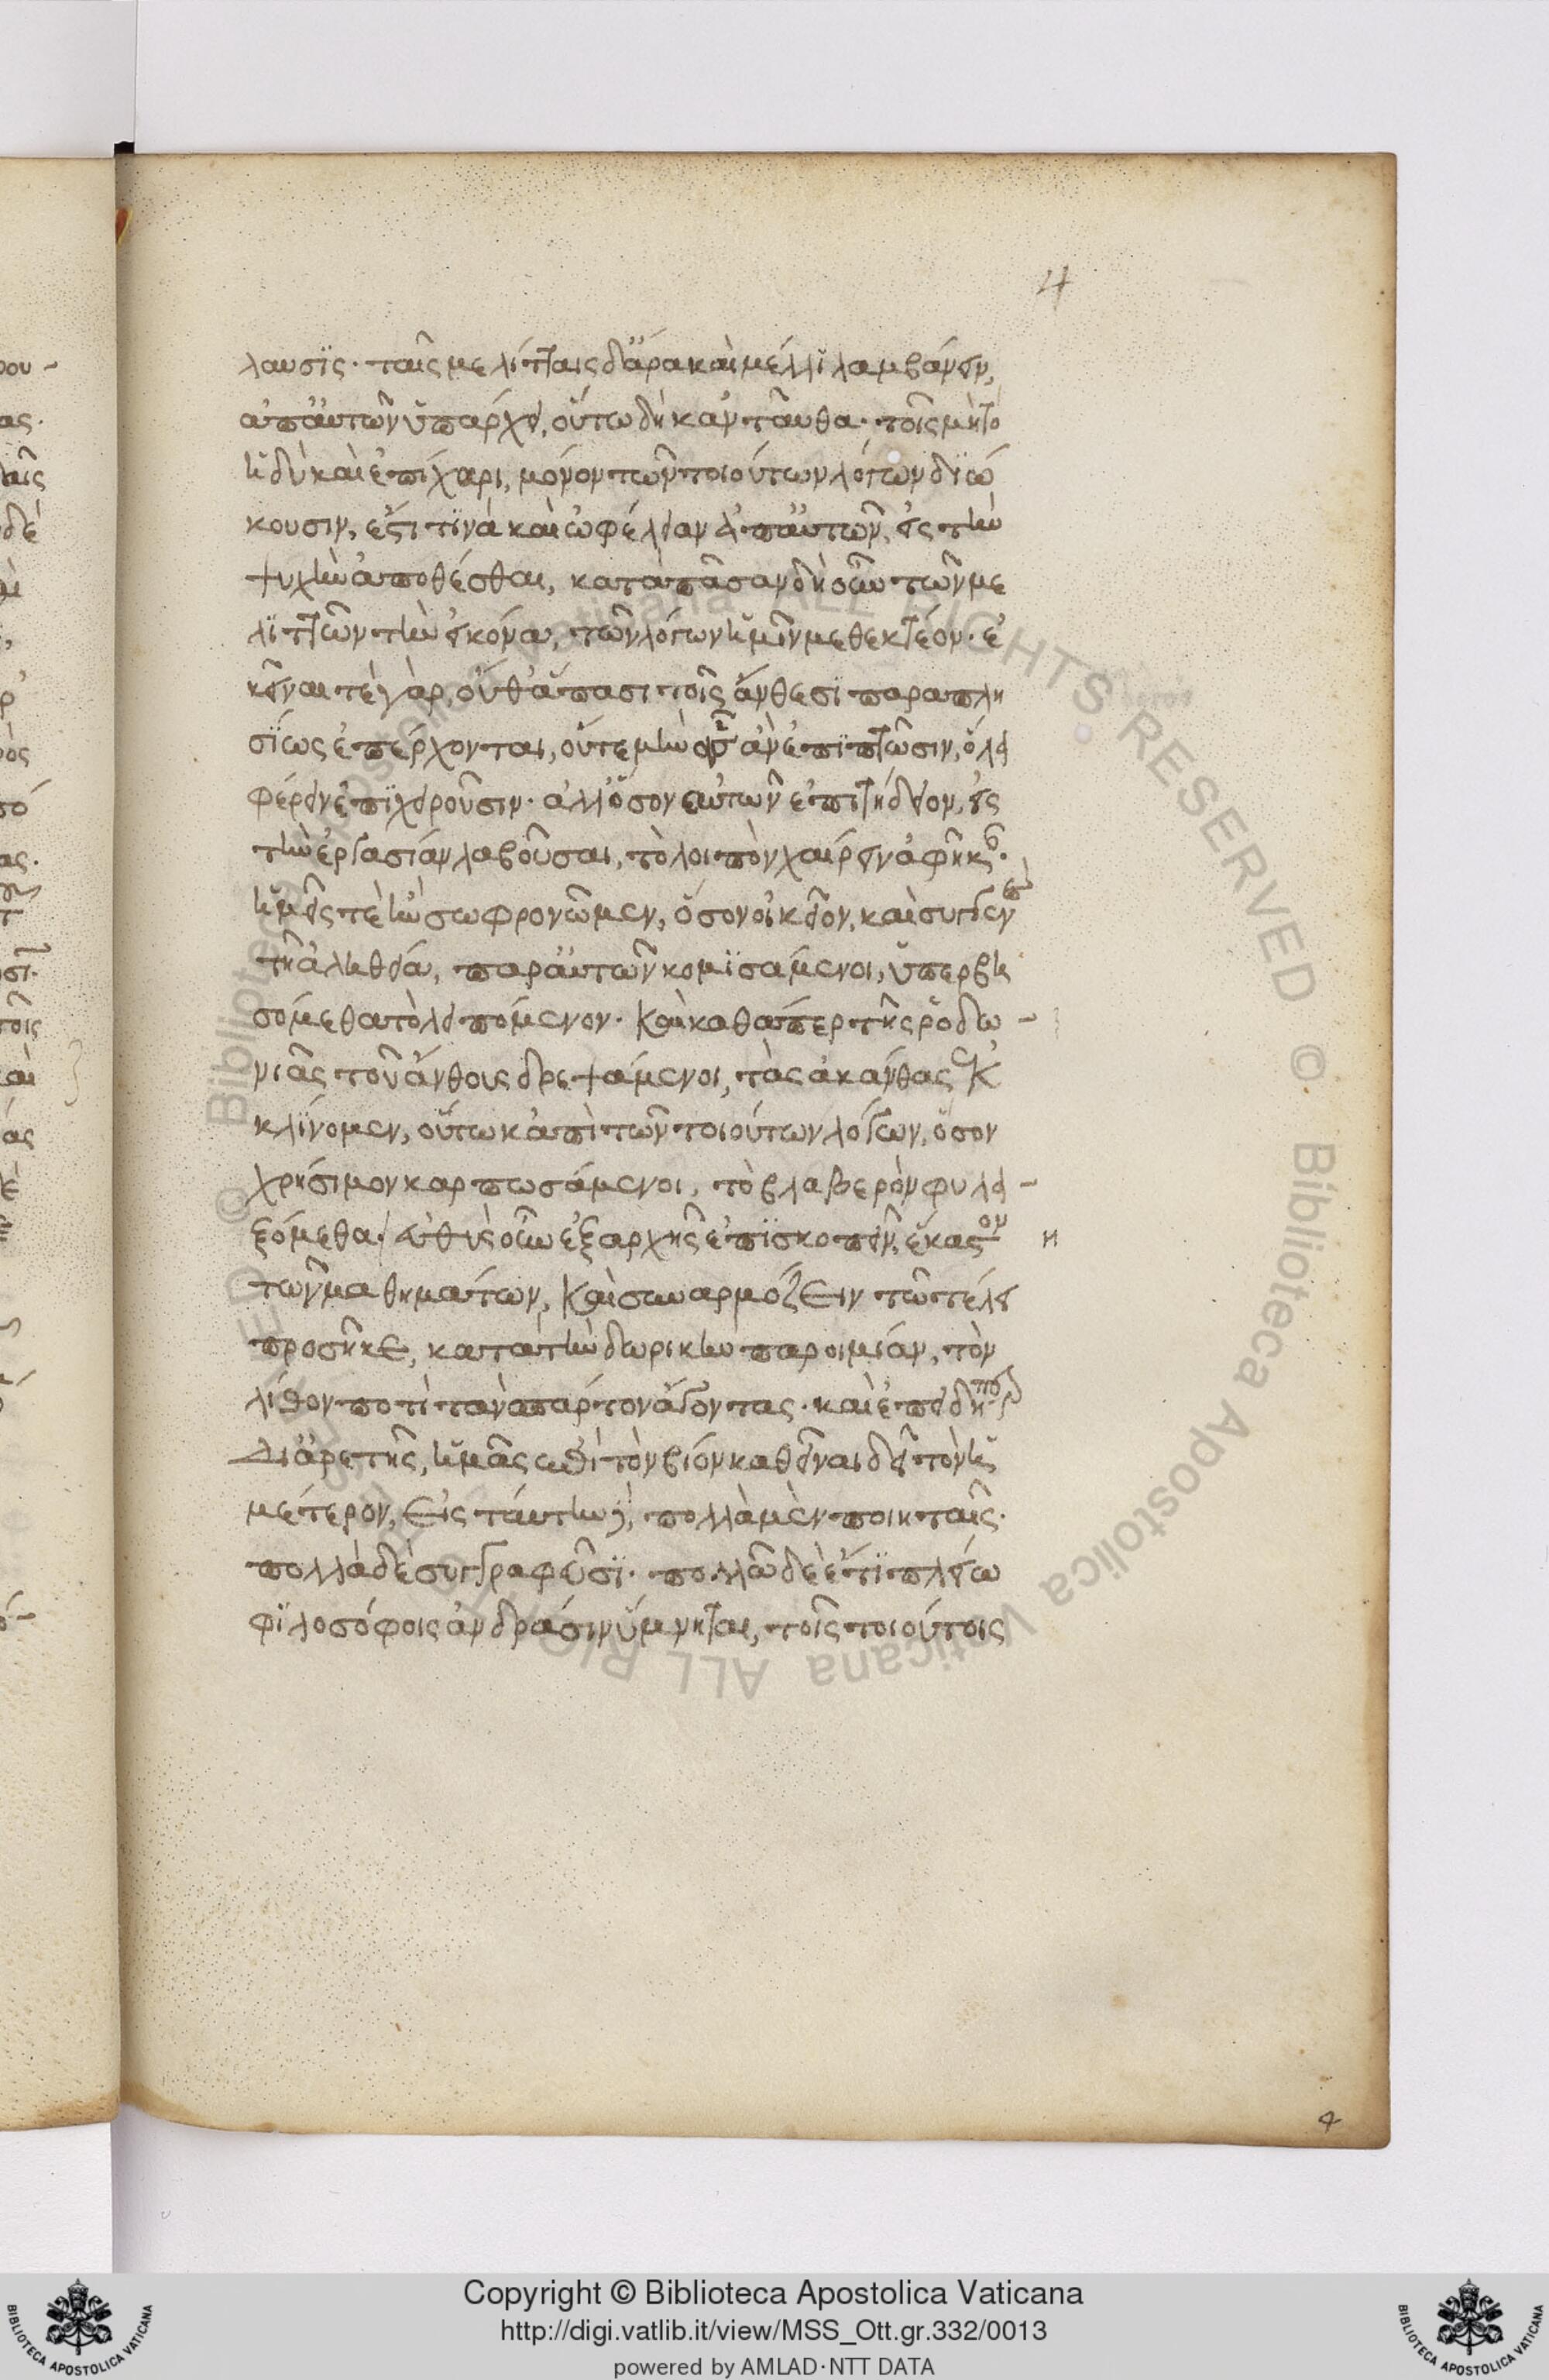 4
λαυσϊς· ταῖς μελίτταις δ' ἄρα καὶ μέλι λαμβάνειν,
ἀπ' αὐτῶν ὑπάρχει, οὕτω δὴ κἀνταῦθα· τοῖς μὴ τὸ
ἡδὺ καὶ ἐπίχαρι, μόνον τῶν τοιούτων λόγων διώ
κουσιν, ἔστι τϊνὰ καὶ ὠφέλειαν ἀπ' αὐτῶν, εἰς τὴν
ψυχὴν ἀποθέσθαι, κατὰ πᾶσαν δὴ οὖν τῶν με
λϊττῶν τὴν εἰκόνα, τῶν λόγων ἡμῖν μεθεκτέον· ἐ
κεῖναι τὲ γὰρ, οὔθ' ἅπασι τοῖς ἄνθεσϊ παραπλη
σίως ἐπέρχονται, οὔτε μὴν οἷς ἂν ἐπϊπτῶσιν, ὅλα
φέρειν ἐπϊχειροῦσιν· ἀλλ' ὅσον αὐτῶν ἐπιτήδειον, εἰς
τὴν ἐργασίαν λαβοῦσαι, τὸ λοιπὸν χαίρειν ἀφῆκαν·
ἡμεῖς τὲ ἢν σωφρονῶμεν, ὅσον οἰκεῖον, καὶ συγγενὲς
τῇ ἀληθεία, παρ' αὐτῶν κομϊσάμενοι, ὑπερβη
σόμεθα τὸ λειπόμενον. Καὶ καθάπερ τῆς ῥοδω -
νιᾶς τοῦ ἄνθους δρεψάμενοι, τὰς ἀκάνθας ἐκ
κλίνομεν, οὕτω κἀπὶ τῶν τοιούτων λόγων, ὅσον
χρήσιμον καρπωσάμενοι, τὸ βλαβερὸν φυλα -
ξόμεθα. εὐθὺς οὖν ἐξαρχῆς ἐπϊσκοπεῖν, ἕκαστον
τῶν μαθημάτων, Καὶ συναρμόζειν τῶ τέλει
προσῆκε, κατὰ τὴν δωρικὴν παροιμίαν, τὸν
λίθον ποτὶ τὰν σπάρτον ἄγοντας· καὶ ἐπειδήπερ
Δι' ἀρετῆς, ἡμᾶς ἐπὶ τὸν βίον καθεῖναι δεῖ τὸν ἡ
μέτερον, εἰς ταύτην δὲ, πολλὰ μὲν ποιηταῖς·
πολλὰ δὲ συγγραφεῦσϊ· πολλῶ δὲ ἔτϊ πλείω
φϊλοσόφοις ἀνδράσιν ὕμνηται, τοῖς τοιούτοις
4
© Biblioteca Apostolica Vaticana ALL RIGHTS RESERVED © Biblioteca Apostolica Vaticana ALL RIGHTS RESERVED
Copyright © Biblioteca Apostolica Vaticana
http://digi.vatlib.it/view/MSS_Ott.gr.332/0013
powered by AMLAD·NTT DATA
BIBLIOTECA APOSTOLICA VATICANA
BIBLIOTECA APOSTOLICA VATICANA